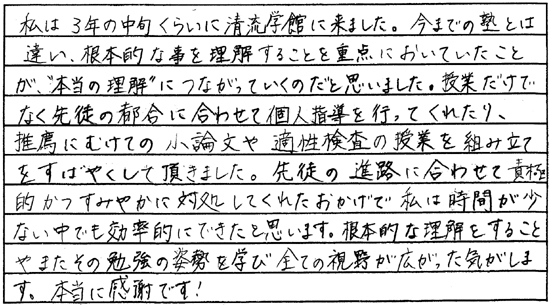 私は3年の中旬くらいに清流学館に来ました。今までの塾とは
違い、根本的な事を理解することを重点においていたこと
が、“本当の理解”につながっていくのだと思いました。授業だけで
なく先徒の都合に合わせて個人指導を行ってくれたり、
推薦にむけての小論文や適性検査の授業を組み立て
をすばやくして頂きました。先徒の進路に合わせて責極
的かつすみやかに対処してくれたおかげで私は時間が少
ない中でも効率的にできたと思います。根本的な理解をすること
やまたその勉強の姿勢を学び全ての視野が広がった気がしま
す。本当に感謝です!